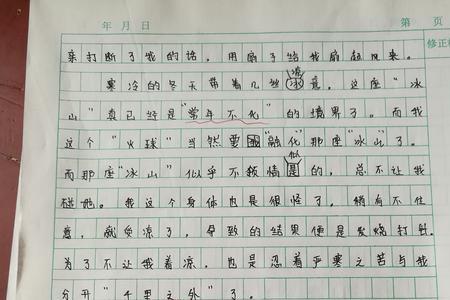 年 月 日
第 页
修正栏
亲打断了我的话，用扇子给我扇起风来。
寒冷的冬天带着几丝凉意，这座“冰
山”真已经是“常年不化”的境界了。而我
这个“火球”当然要“融化”那座“冰山”了。
而那座“冰山”似乎不领情似的，总不让我
碰她。我这个身体也是很怪了，稍有不注
意，就负凉了，导致的结果便是发烧打
为了不让我着凉，也是忍着严寒之苦与我
分开“千里之外”了。